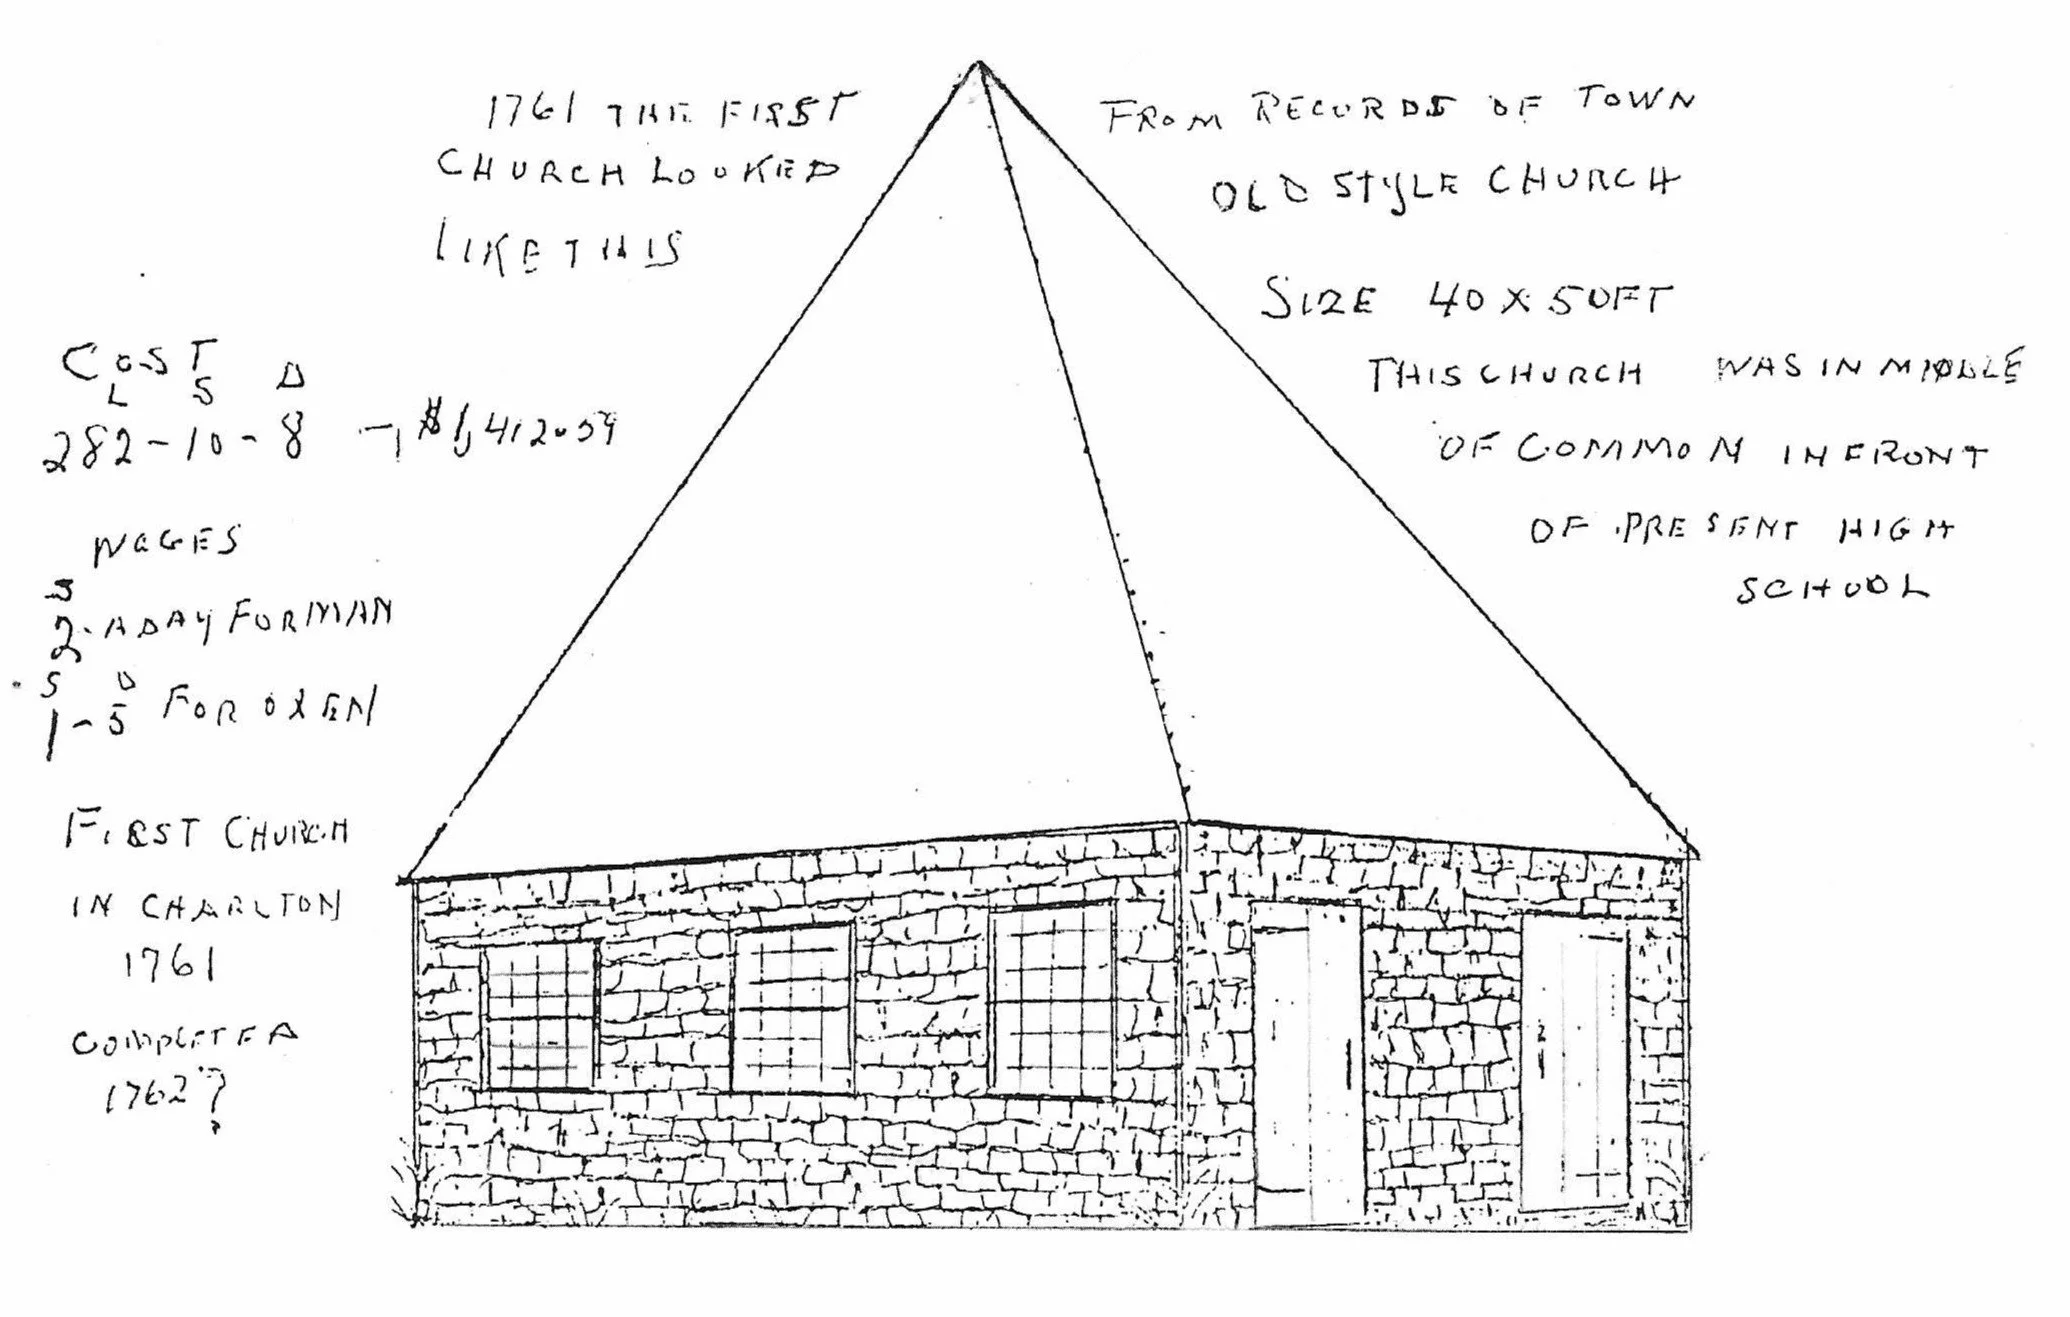 1761 THE FIRST
CHURCH LOOKED
LIKE THIS
FROM RECORDS OF TOWN
OLD STYLE CHURCH
SIZE 40 X 50FT
THIS CHURCH WAS IN MIDDLE
OF COMMON IN FRONT
OF PRESENT HIGH
SCHOOL
COST
L S D
282-10-8 - $1,412.59
WAGES
S
2-A DAY FOR MAN
S D
1-5 FOR OXEN
FIRST CHURCH
IN CHARLTON
1761
COMPLETED
1762?